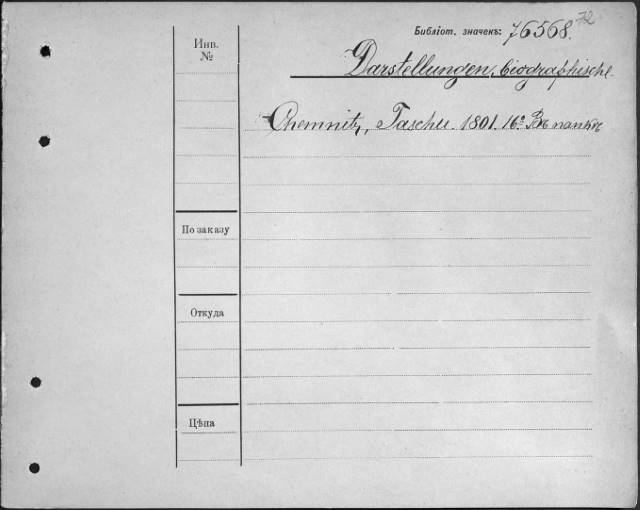 72
Библіот. значекъ: 76568.
Инв.
№
Darstellungen, biographische.
Chemnitz, Tasché. 1801. 16º. Въ папкѣ
По заказу
Откуда
Цѣна